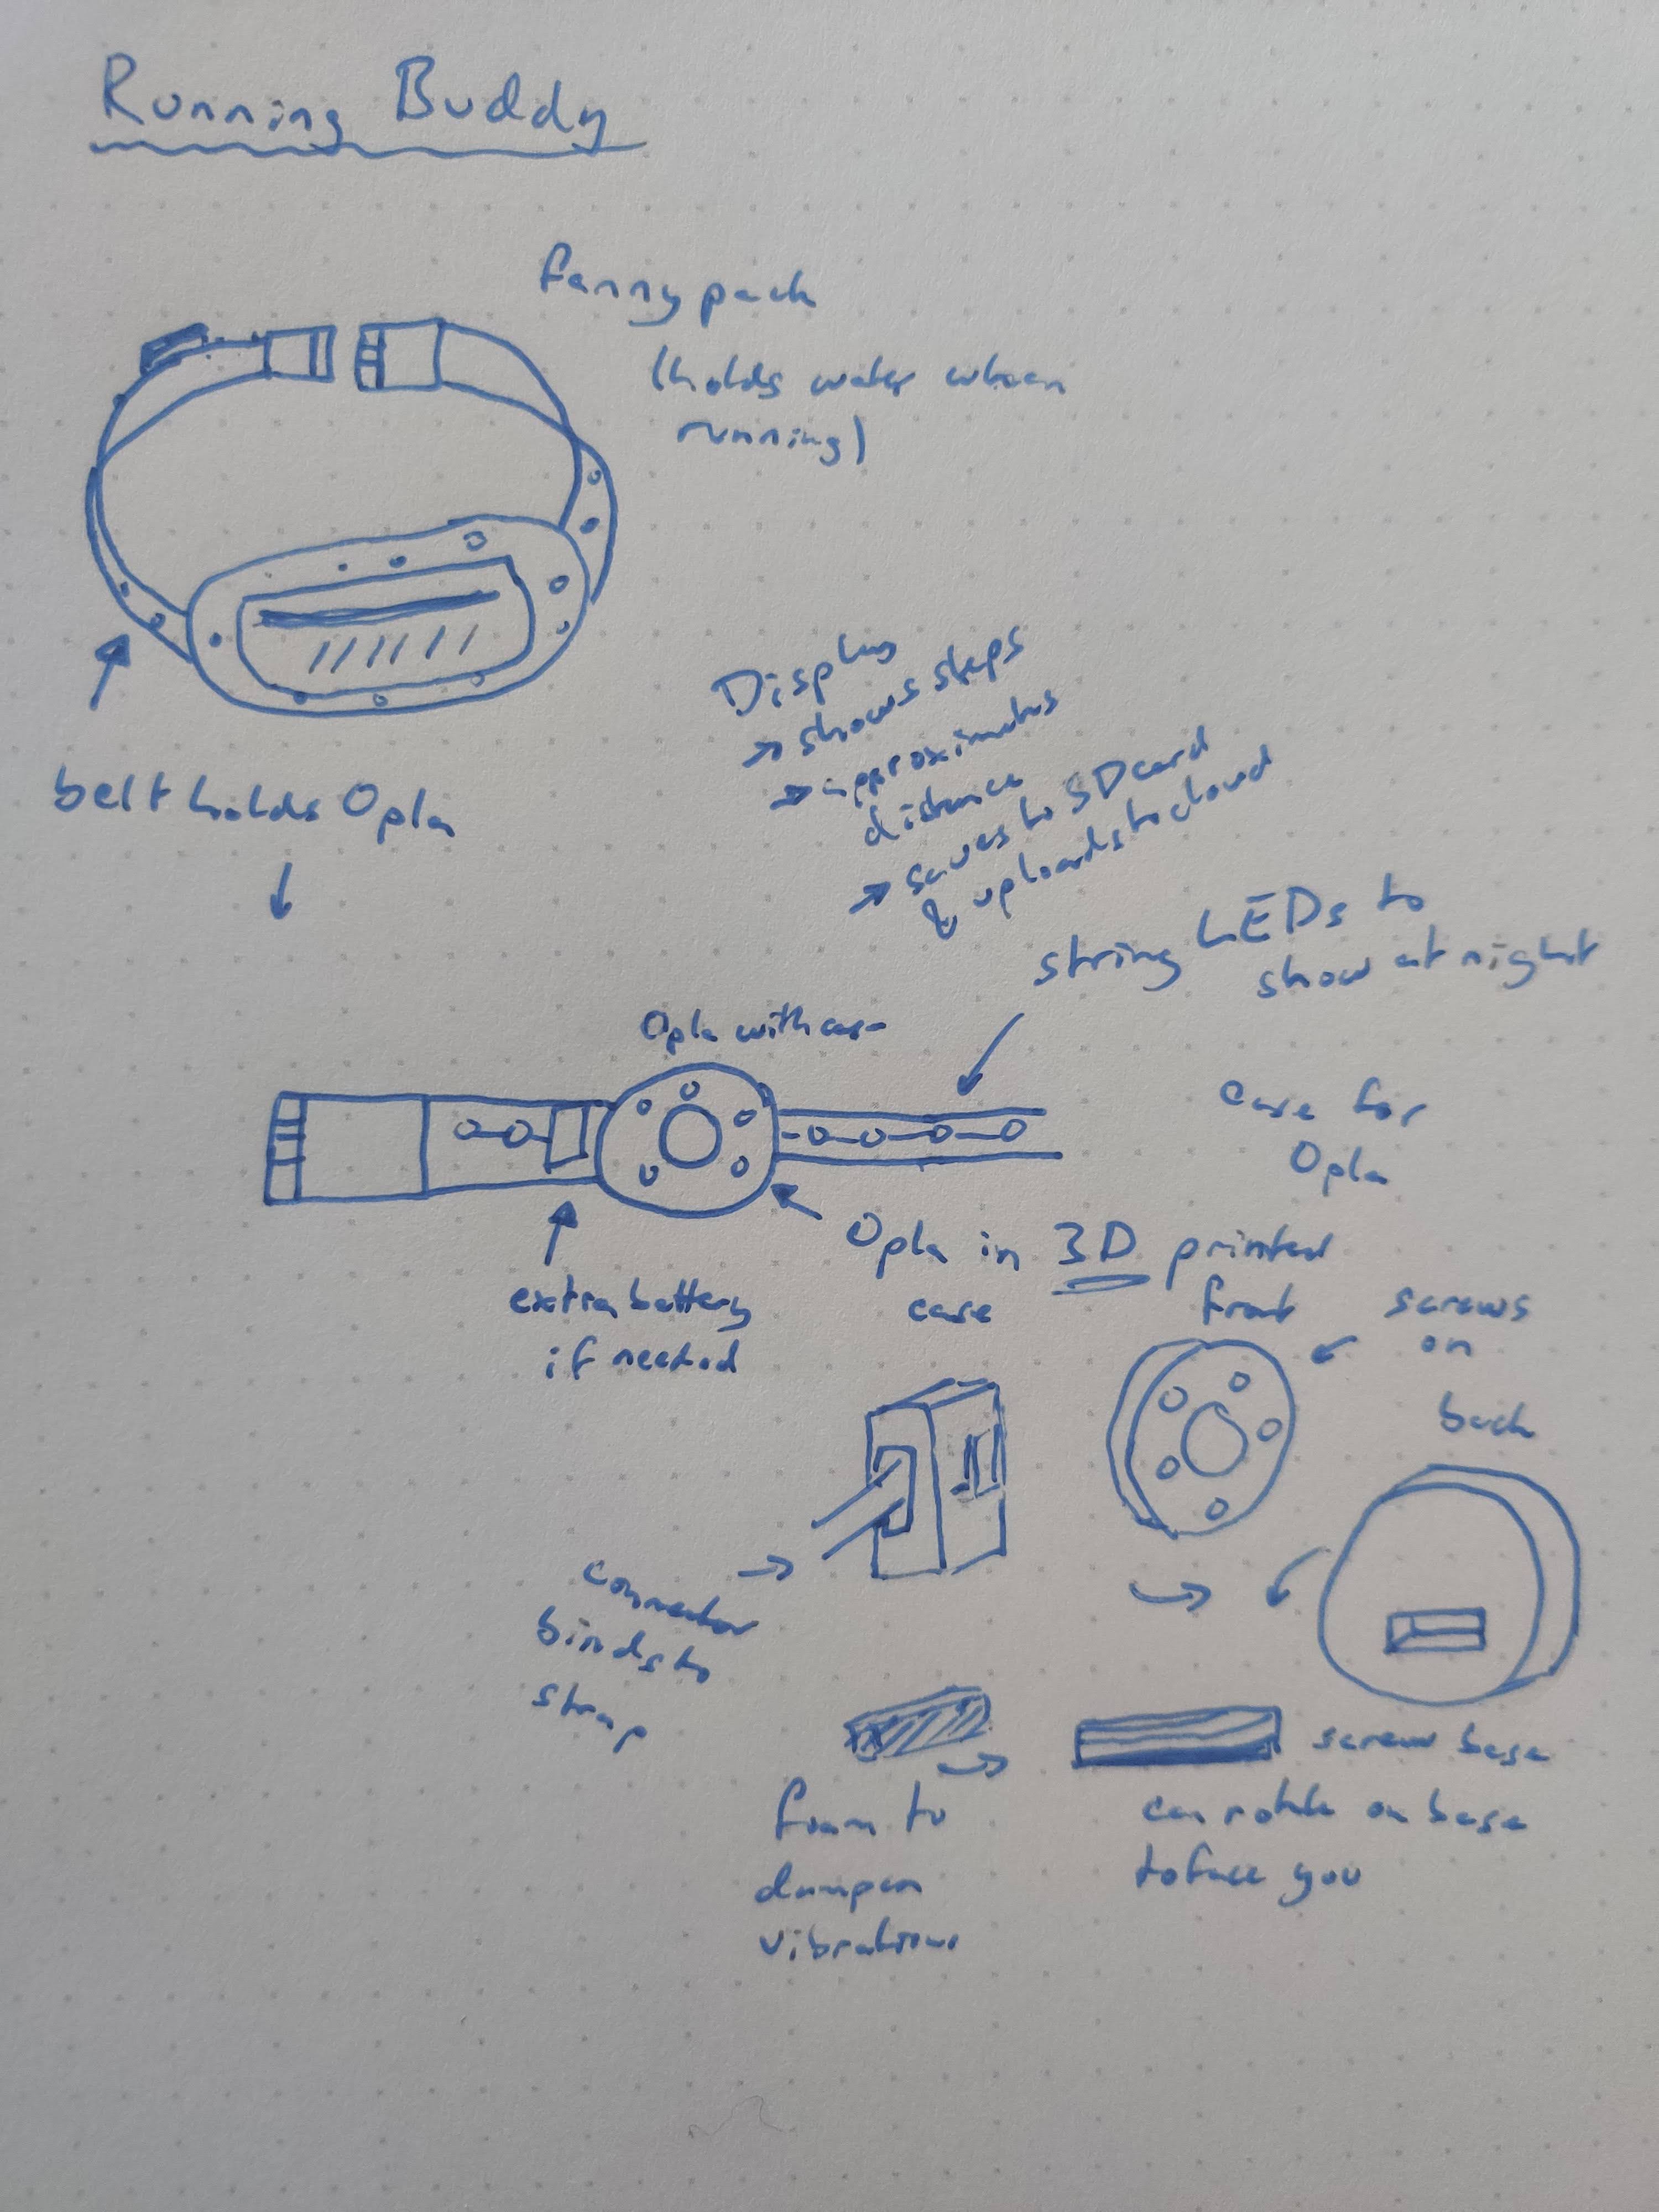 Running Buddy
fanny pack
(holds water when
running)
Display
→ shows steps
→ approximates
distance
→ saves to SD card
& uploads to cloud
belt holds Opla
string LEDs to
show at night
Opla with case
case for
Opla
Opla in 3D printed
case
extra battery
if needed
front
screws
on
back
connector
binds to
strap
foam to
dampen
vibrations
screw base
can rotate on base
to face you